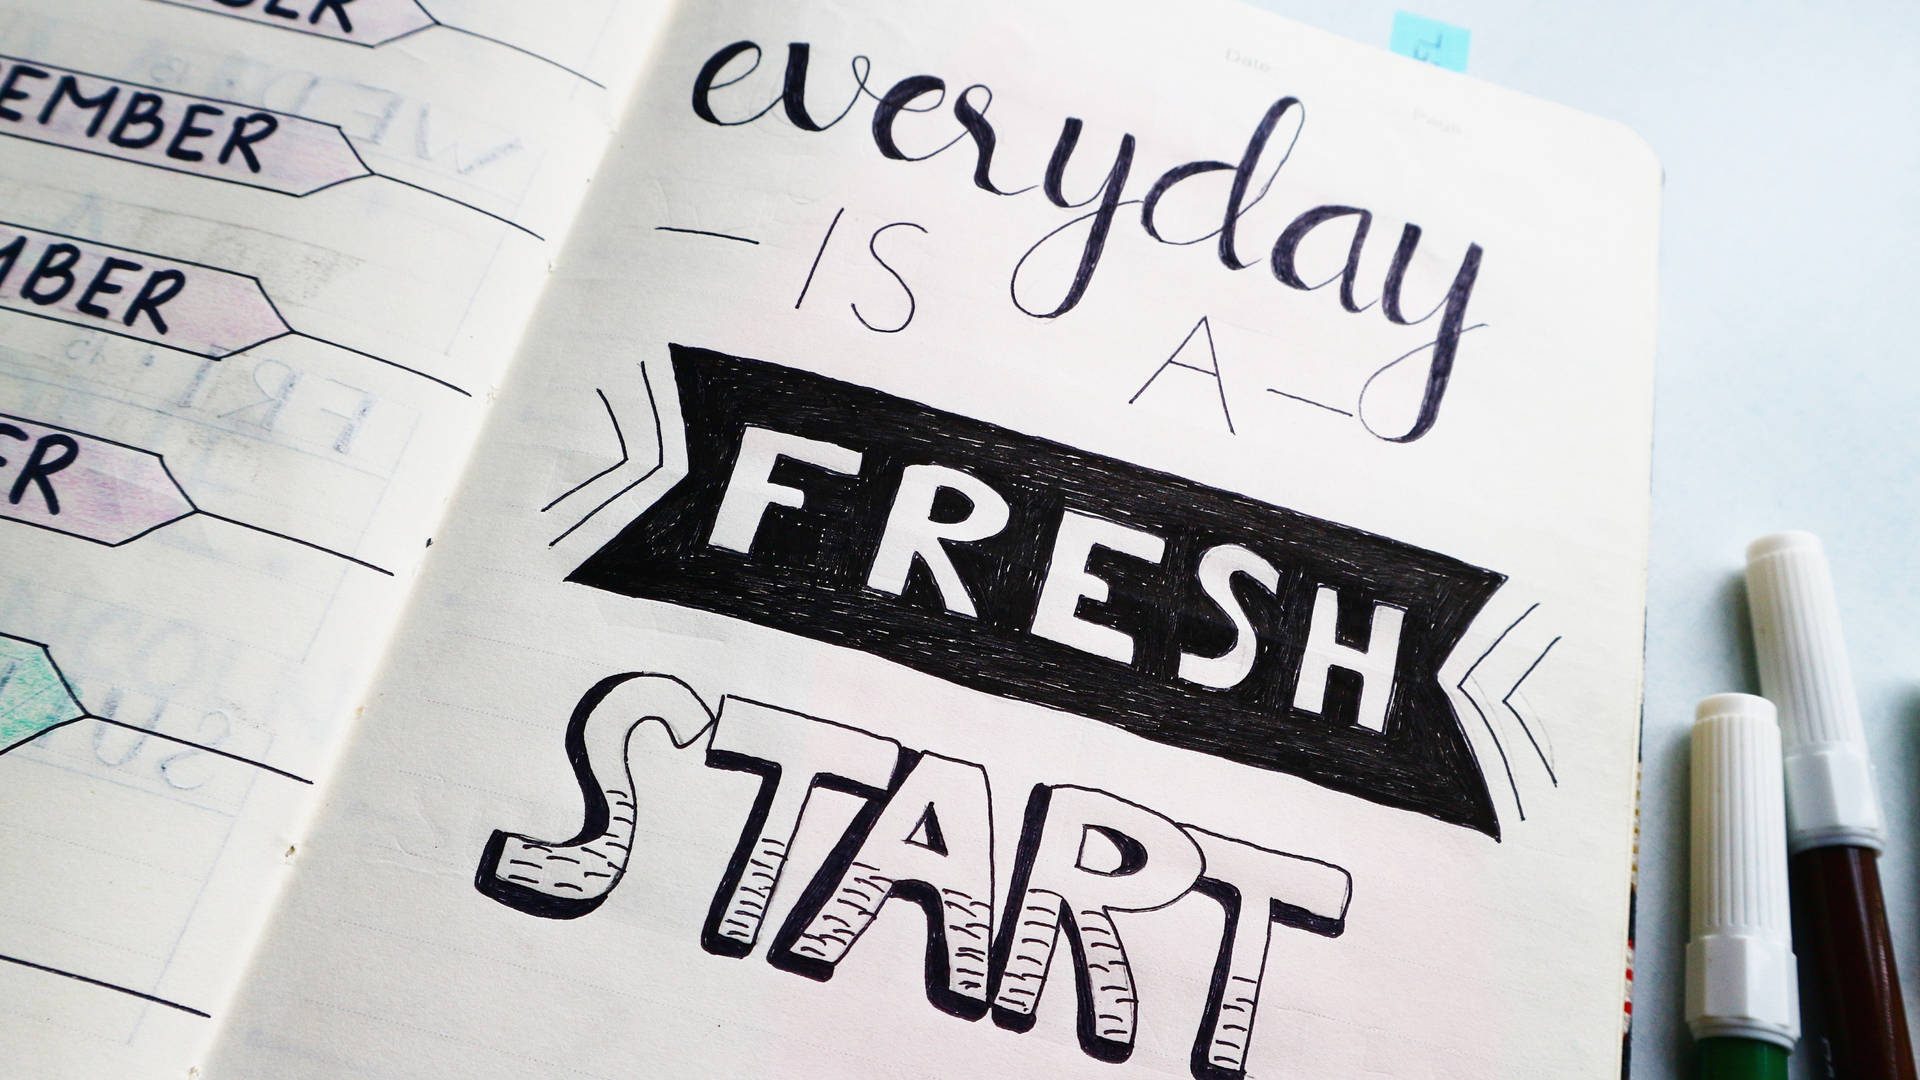 EMBER
MBER
ER
Date
Page
everyday
IS A
FRESH
START